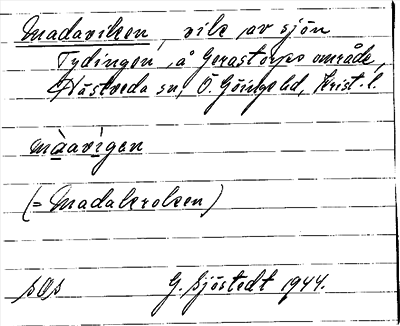 Madaviken, vik av sjön
Tydingen, å Gerastorps område,
Hästveda sn, Ö. Göinge hd, Krist. l.
màavìgen
(= Madakroken)
sOs G. Sjöstedt 1944.